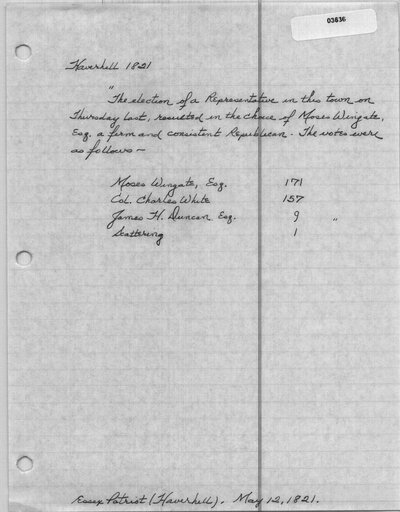 03636
Haverhill 1821
"The election of a Representative in this town on
Thursday last, resulted in the choice of Moses Wingate,
Esq. a firm and consistent Republican. The votes were
as follows—
Moses Wingate, Esq. 171
Col. Charles White 157
James H. Duncan Esq. 9 "
Scattering 1
Essex Patriot (Haverhill). May 12, 1821.